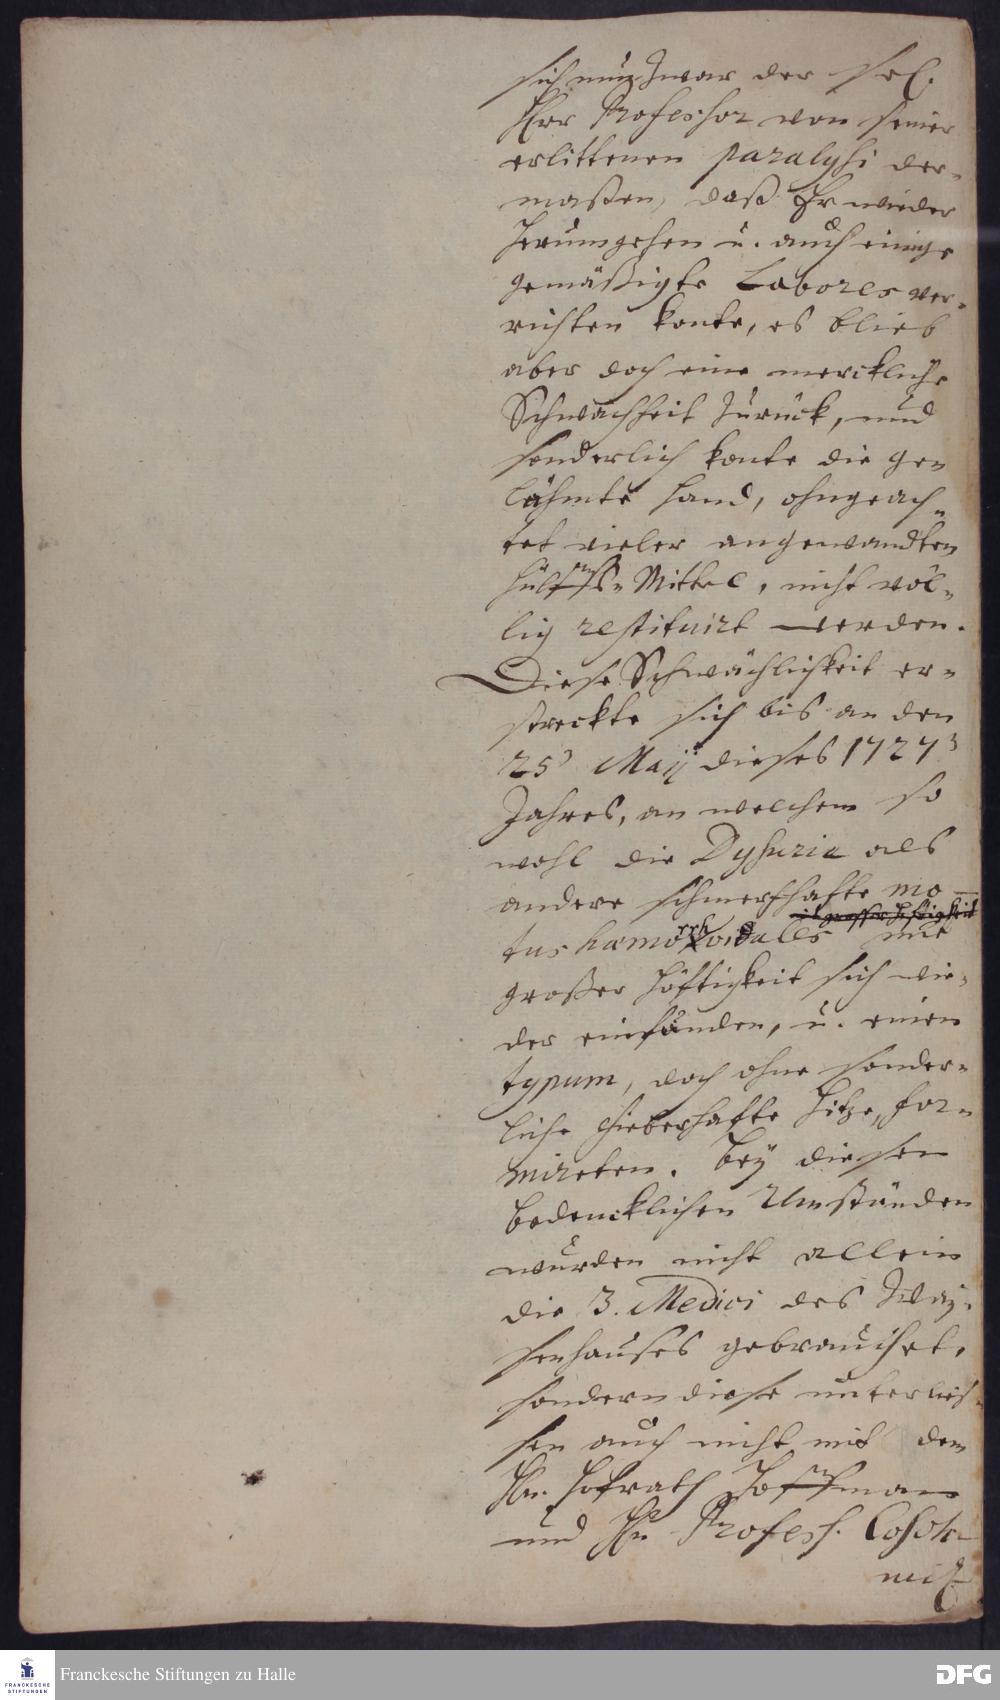 sich nun zwar der sel.
Herr Professor von seiner
erlittenen paralysi der-
maßen, daß Er wieder
herumgehen u. auch einige
gemäßigte Labores ver-
richten konte, es blieb
aber doch eine merckliche
Schwachheit zurück, und
sonderlich konte die ge-
lähmte Hand, ohngeach-
tet vieler angewandten
Hülffs-Mittel, nicht völ-
lig restituirt werden.
Diese Schwächlichkeit er-
streckte sich bis an den
25 Maij dieses 1727
Jahres, an welchem so
wohl die Dysurie als
andere schmertzhafte mo-
tus hæmorrhoidales mit
großer Höftigkeit sich wie-
der einfanden, u. einen
typum, doch ohne sonder-
liche fieberhafte Hitze, for-
mireten. Bey diesen
bedencklichen Umständen
wurden nicht allein
die 3. Medici des Way-
senhauses gebrauchet,
sondern diese unterlies-
sen auch nicht mit dem
Hn. Hofrath Hoffman
und Hn Profess. Coschwitz
Franckesche Stiftungen zu Halle
FRANCKESCHE
STIFTUNGEN
DFG